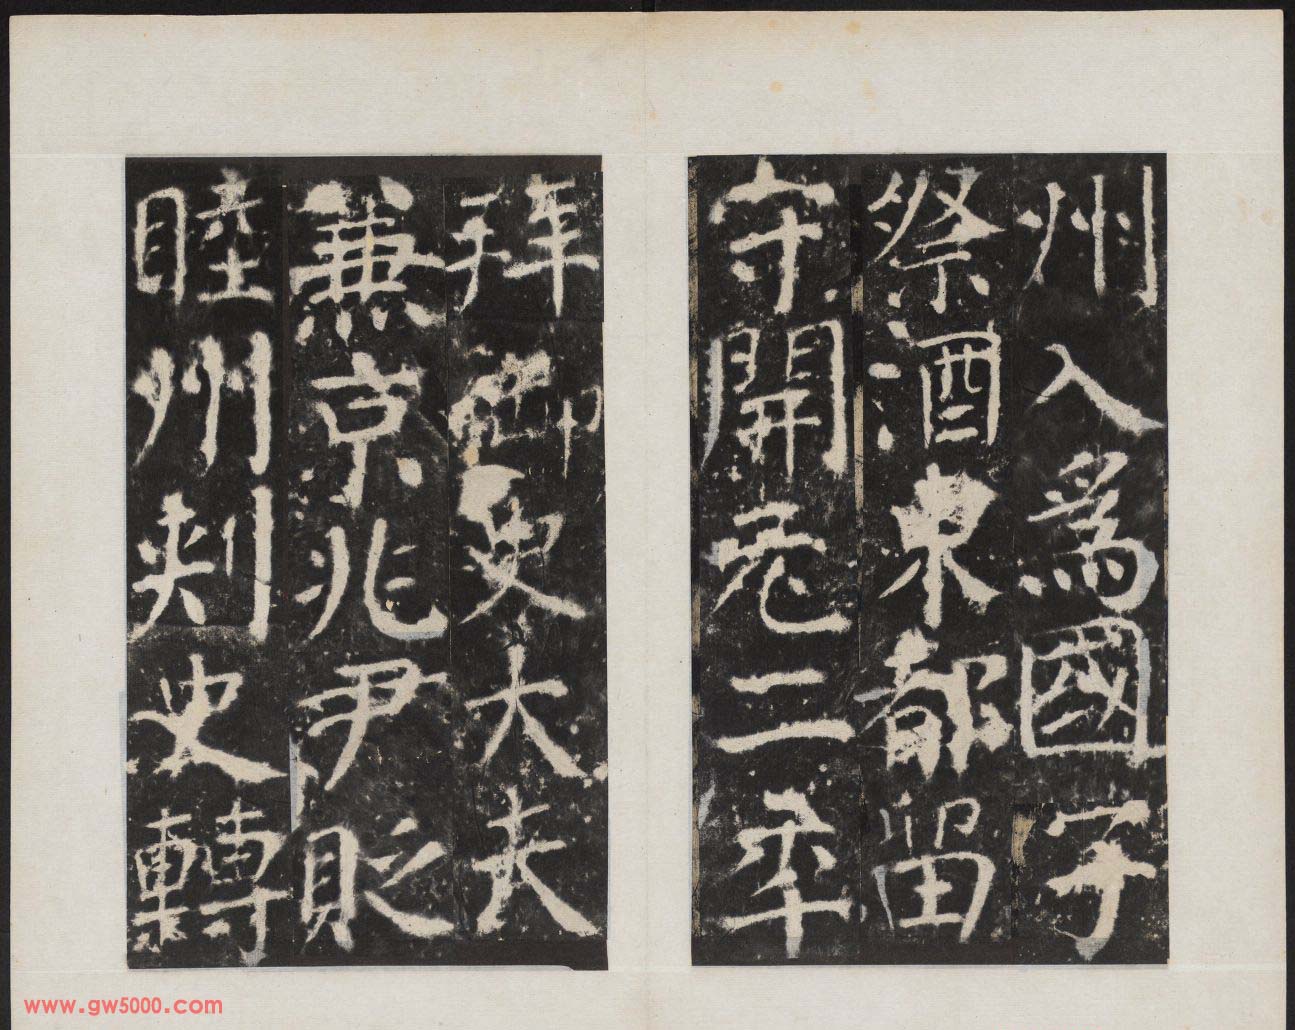 州入爲國子
祭酒東都留
守開元二年
拜御史大夫
兼京兆尹貶
睦州刺史轉
www.gw5000.com